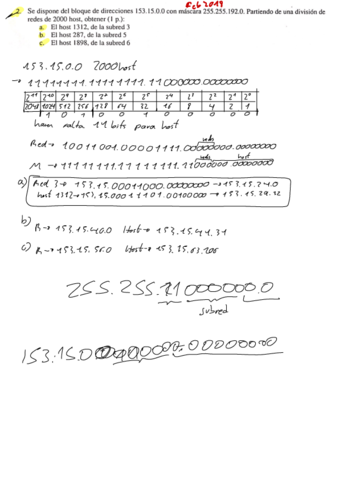 Feb 2019
2. Se dispone del bloque de direcciones 153.15.0.0 con máscara 255.255.192.0. Partiendo de una división de
redes de 2000 host, obtener (1 p.):
a. El host 1312, de la subred 3
b. El host 287, de la subred 5
c. El host 1898, de la subred 6
153.15.0.0 2000host
→ 11111111.11111111.11000000.00000000
2¹¹ 2¹⁰ 2⁹ 2⁸ 2⁷ 2⁶ 2⁵ 2⁴ 2³ 2² 2¹ 2⁰
2048 1024 512 256 128 64 32 16 8 4 2 1
1 0 1 0 0 1 0 0 0 0 0
hacen falta 11 bits para host
Red → 10011001.00001111.00000000.00000000
M → 11111111.11111111.11000000.00000000
a) Red 3 → 153.15.00011000.00000000 → 153.15.24.0
host 1312 → 153.15.00011101.00100000 → 153.15.29.32
b) R → 153.15.40.0 Host → 153.15.41.31
c) R → 153.15.56.0 Host → 153.15.63.106
255.255.11000000.0
subred
153.15.00000000.00000000